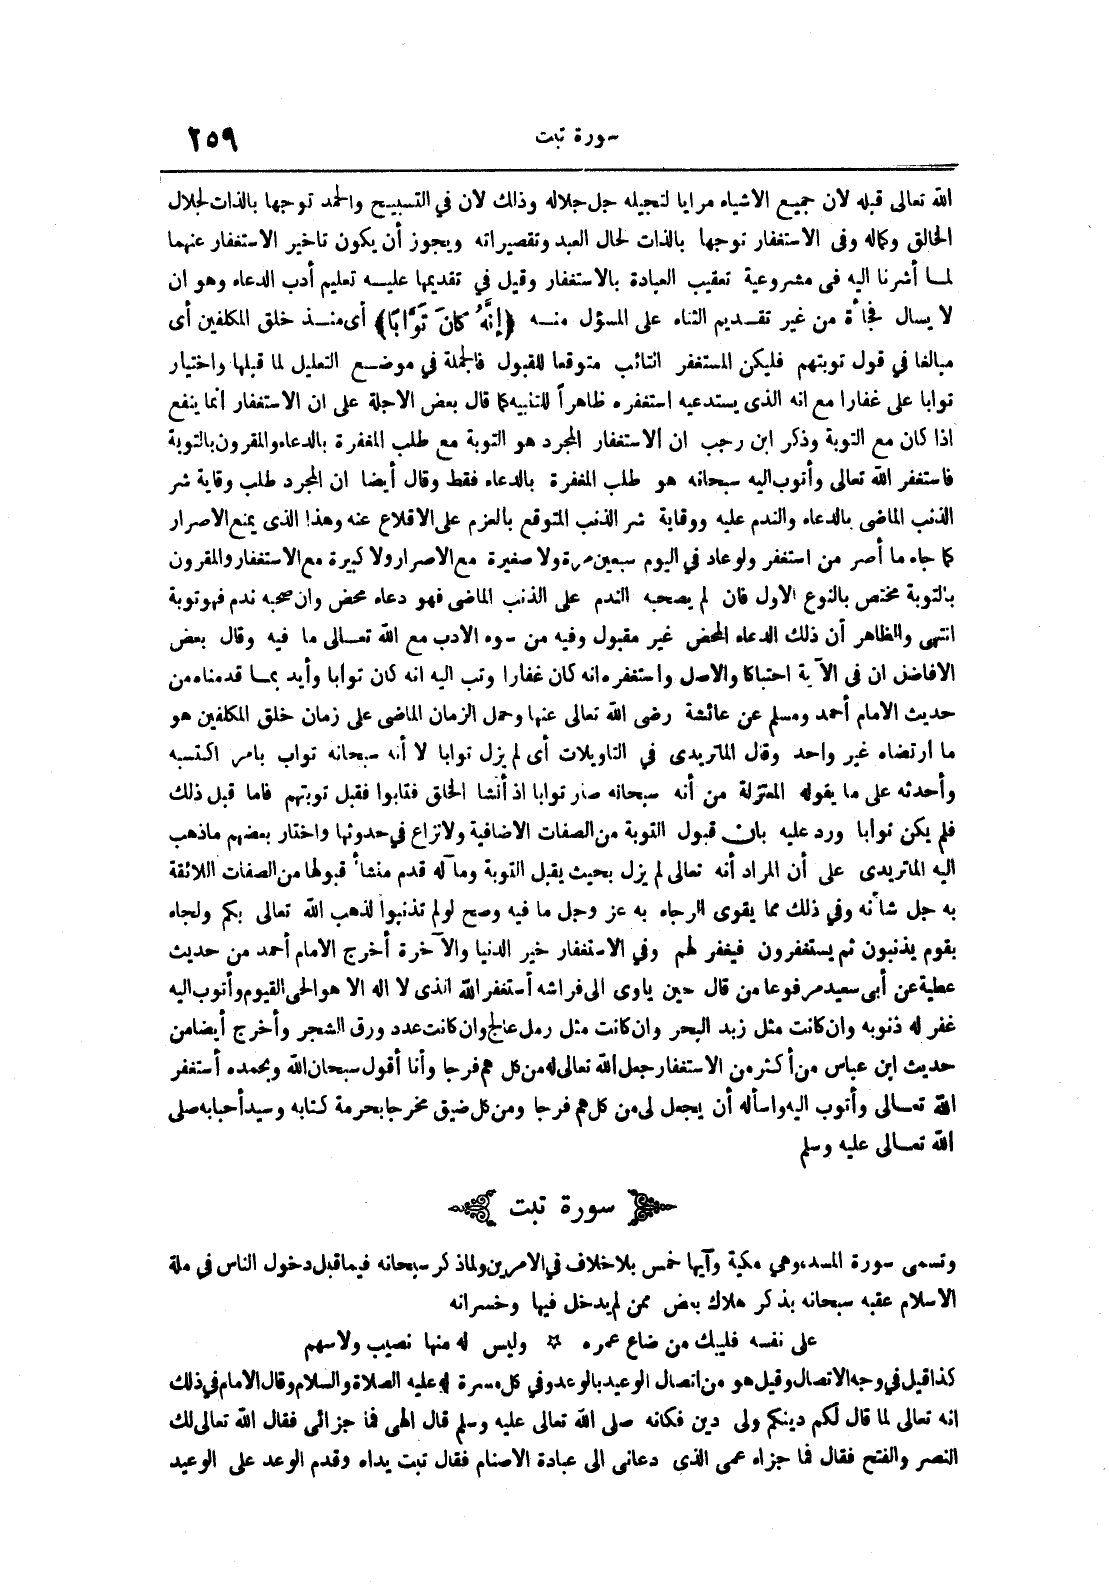 سورة تبت
٢٥٩
الله تعالى قبله لان جميع الاشياء مرايا لتجليه جل جلاله وذلك لان في التسبيح والحمد توجها بالذات لجلال
الخالق وكماله وفى الاستغفار توجها بالذات لحال العبد وتقصيراته ويجوز أن يكون تاخير الاستغفار عنهما
لما أشرنا اليه فى مشروعية تعقيب العبادة بالاستغفار وقيل في تقديمها عليه تعليم أدب الدعاء وهو ان
لا يسال فجأة من غير تقديم الثناء على المسؤل منه ﴿إِنَّهُ كَانَ تَوَّابًا﴾ أى منذ خلق المكلفين أى
مبالغا في قول توبتهم فليكن المستغفر التائب متوقعا للقبول فالجملة في موضع التعليل لما قبلها واختيار
توابا على غفارا مع انه الذى يستدعيه استغفره ظاهراً للتنبيه كما قال بعض الاجلة على ان الاستغفار انما ينفع
اذا كان مع التوبة وذكر ابن رجب ان الاستغفار المجرد هو التوبة مع طلب المغفرة بالدعاء والمقرون بالتوبة
فاستغفر الله تعالى وأتوب اليه سبحانه هو طلب المغفرة بالدعاء فقط وقال أيضا ان المجرد طلب وقاية شر
الذنب الماضى بالدعاء والندم عليه ووقاية شر الذنب المتوقع بالعزم على الاقلاع عنه وهذا الذى يمنع الاصرار
كما جاء ما أصر من استغفر ولو عاد في اليوم سبعين مرة ولا صغيرة مع الاصرار ولا كبيرة مع الاستغفار والمقرون
بالتوبة مختص بالنوع الاول فان لم يصحبه الندم على الذنب الماضى فهو دعاء محض وان صحبه ندم فهو توبة
انتهى والظاهر أن ذلك الدعاء المحض غير مقبول وفيه من سوء الادب مع الله تعالى ما فيه وقال بعض
الافاضل ان فى الآية احتباكا والاصل واستغفره انه كان غفارا وتب اليه انه كان توابا وأيد بما قدمناه من
حديث الامام أحمد ومسلم عن عائشة رضى الله تعالى عنها وحمل الزمان الماضى على زمان خلق المكلفين هو
ما ارتضاه غير واحد وقال الماتريدى في التاويلات أى لم يزل توابا لا أنه سبحانه تواب بامر اكتسبه
وأحدثه على ما يقوله المعتزلة من أنه سبحانه صار توابا اذ أنشا الخلق فتابوا فقبل توبتهم فاما قبل ذلك
فلم يكن توابا ورد عليه بان قبول التوبة من الصفات الاضافية ولا نزاع في حدوثها واختار بعضهم ما ذهب
اليه الماتريدى على أن المراد أنه تعالى لم يزل بحيث يقبل التوبة ومآله قدم منشأ قبولها من الصفات اللائقة
به جل شأنه وفي ذلك مما يقوى الرجاء به عز وجل ما فيه وصح لو لم تذنبوا لذهب الله تعالى بكم ولجاء
بقوم يذنبون ثم يستغفرون فيغفر لهم وفي الاستغفار خير الدنيا والآخرة أخرج الامام أحمد من حديث
عطية عن أبى سعيد مرفوعا من قال حين ياوى الى فراشه أستغفر الله الذى لا اله الا هو الحى القيوم وأتوب اليه
غفر له ذنوبه وان كانت مثل زبد البحر وان كانت مثل رمل عالج وان كانت عدد ورق الشجر وأخرج أيضا من
حديث ابن عباس من أكثر من الاستغفار جعل الله تعالى له من كل هم فرجا وأنا أقول سبحان الله وبحمده أستغفر
الله تعالى وأتوب اليه واسأله أن يجعل لى من كل هم فرجا ومن كل ضيق مخرجا بحرمة كتابه وسيد أحبابه صلى
الله تعالى عليه وسلم
سورة تبت
وتسمى سورة المسد، وهي مكية وآيها خمس بلا خلاف في الامرين ولما ذكر سبحانه فيما قبل دخول الناس في ملة
الاسلام عقبه سبحانه بذكر هلاك بعض ممن لم يدخل فيها وخسرانه
على نفسه فليبك من ضاع عمره ☆ وليس له منها نصيب ولا سهم
كذا قيل في وجه الاتصال وقيل هو من اتصال الوعيد بالوعد وفي كل مسرة له عليه الصلاة والسلام وقال الامام في ذلك
انه تعالى لما قال لكم دينكم ولى دين فكانه صلى الله تعالى عليه وسلم قال الهى فما جزائى فقال الله تعالى لك
النصر والفتح فقال فما جزاء عمى الذى دعانى الى عبادة الاصنام فقال تبت يداه وقدم الوعد على الوعيد